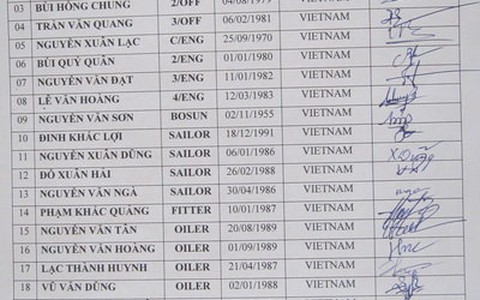 03 BÙI HỒNG CHUNG 2/OFF 04/08/1979 VIETNAM
04 TRẦN VĂN QUANG 3/OFF 06/02/1981 VIETNAM
05 NGUYỄN XUÂN LẠC C/ENG 25/09/1970 VIETNAM
06 BÙI QUÝ QUÂN 2/ENG 01/01/1980 VIETNAM
07 NGUYỄN VĂN ĐẠT 3/ENG 11/01/1982 VIETNAM
08 LÊ VĂN HOÀNG 4/ENG 12/03/1983 VIETNAM
09 NGUYỄN VĂN SƠN BOSUN 02/11/1955 VIETNAM
10 ĐINH KHẮC LỢI SAILOR 18/12/1991 VIETNAM
11 NGUYỄN XUÂN DŨNG SAILOR 06/01/1986 VIETNAM
12 ĐỖ XUÂN HẢI SAILOR 26/02/1988 VIETNAM
13 NGUYỄN VĂN NGÀ SAILOR 30/04/1986 VIETNAM
14 PHẠM KHẮC QUẢNG FITTER 10/01/1987 VIETNAM
15 NGUYỄN VĂN TÂN OILER 20/08/1989 VIETNAM
16 NGUYỄN VĂN HOÀNG OILER 01/09/1989 VIETNAM
17 LẠC THÀNH HUYNH OILER 21/04/1987 VIETNAM
18 VŨ VĂN DŨNG OILER 02/01/1988 VIETNAM